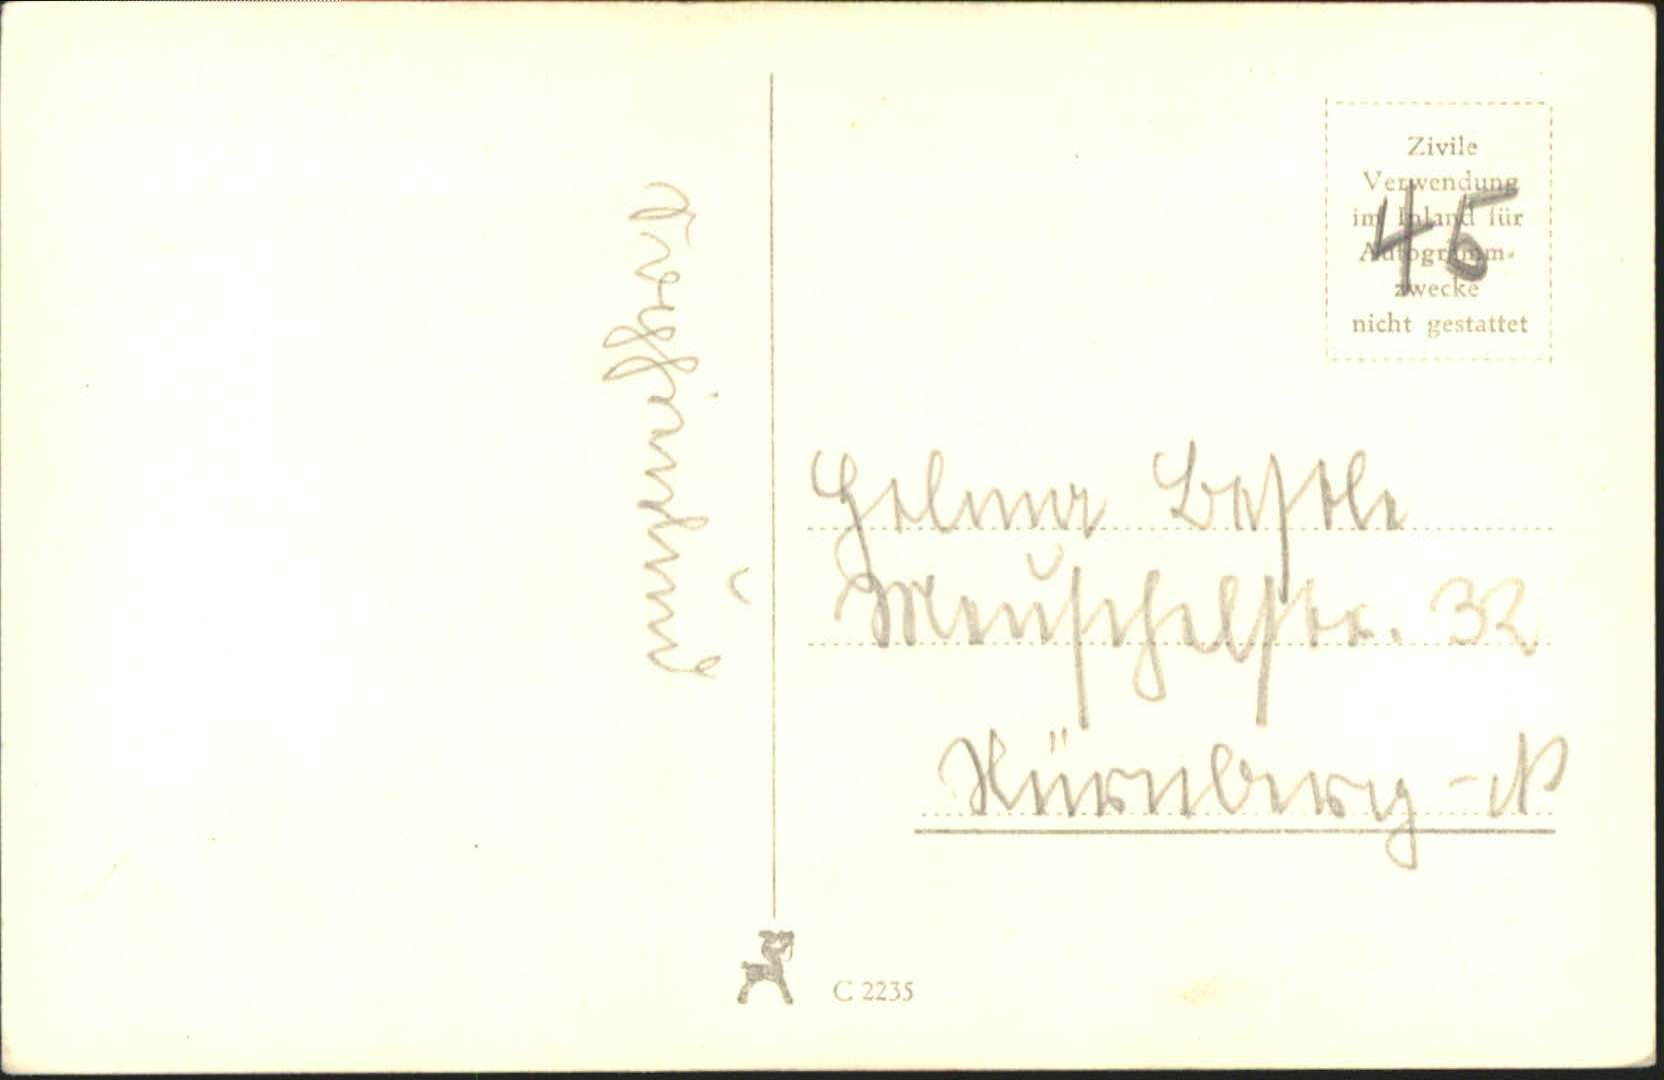 Zivile
Verwendung
im Inland für
Autogramm-
zwecke
nicht gestattet
45
Helma Bestle
Meuschelstr. 32
Nürnberg - N
C 2235